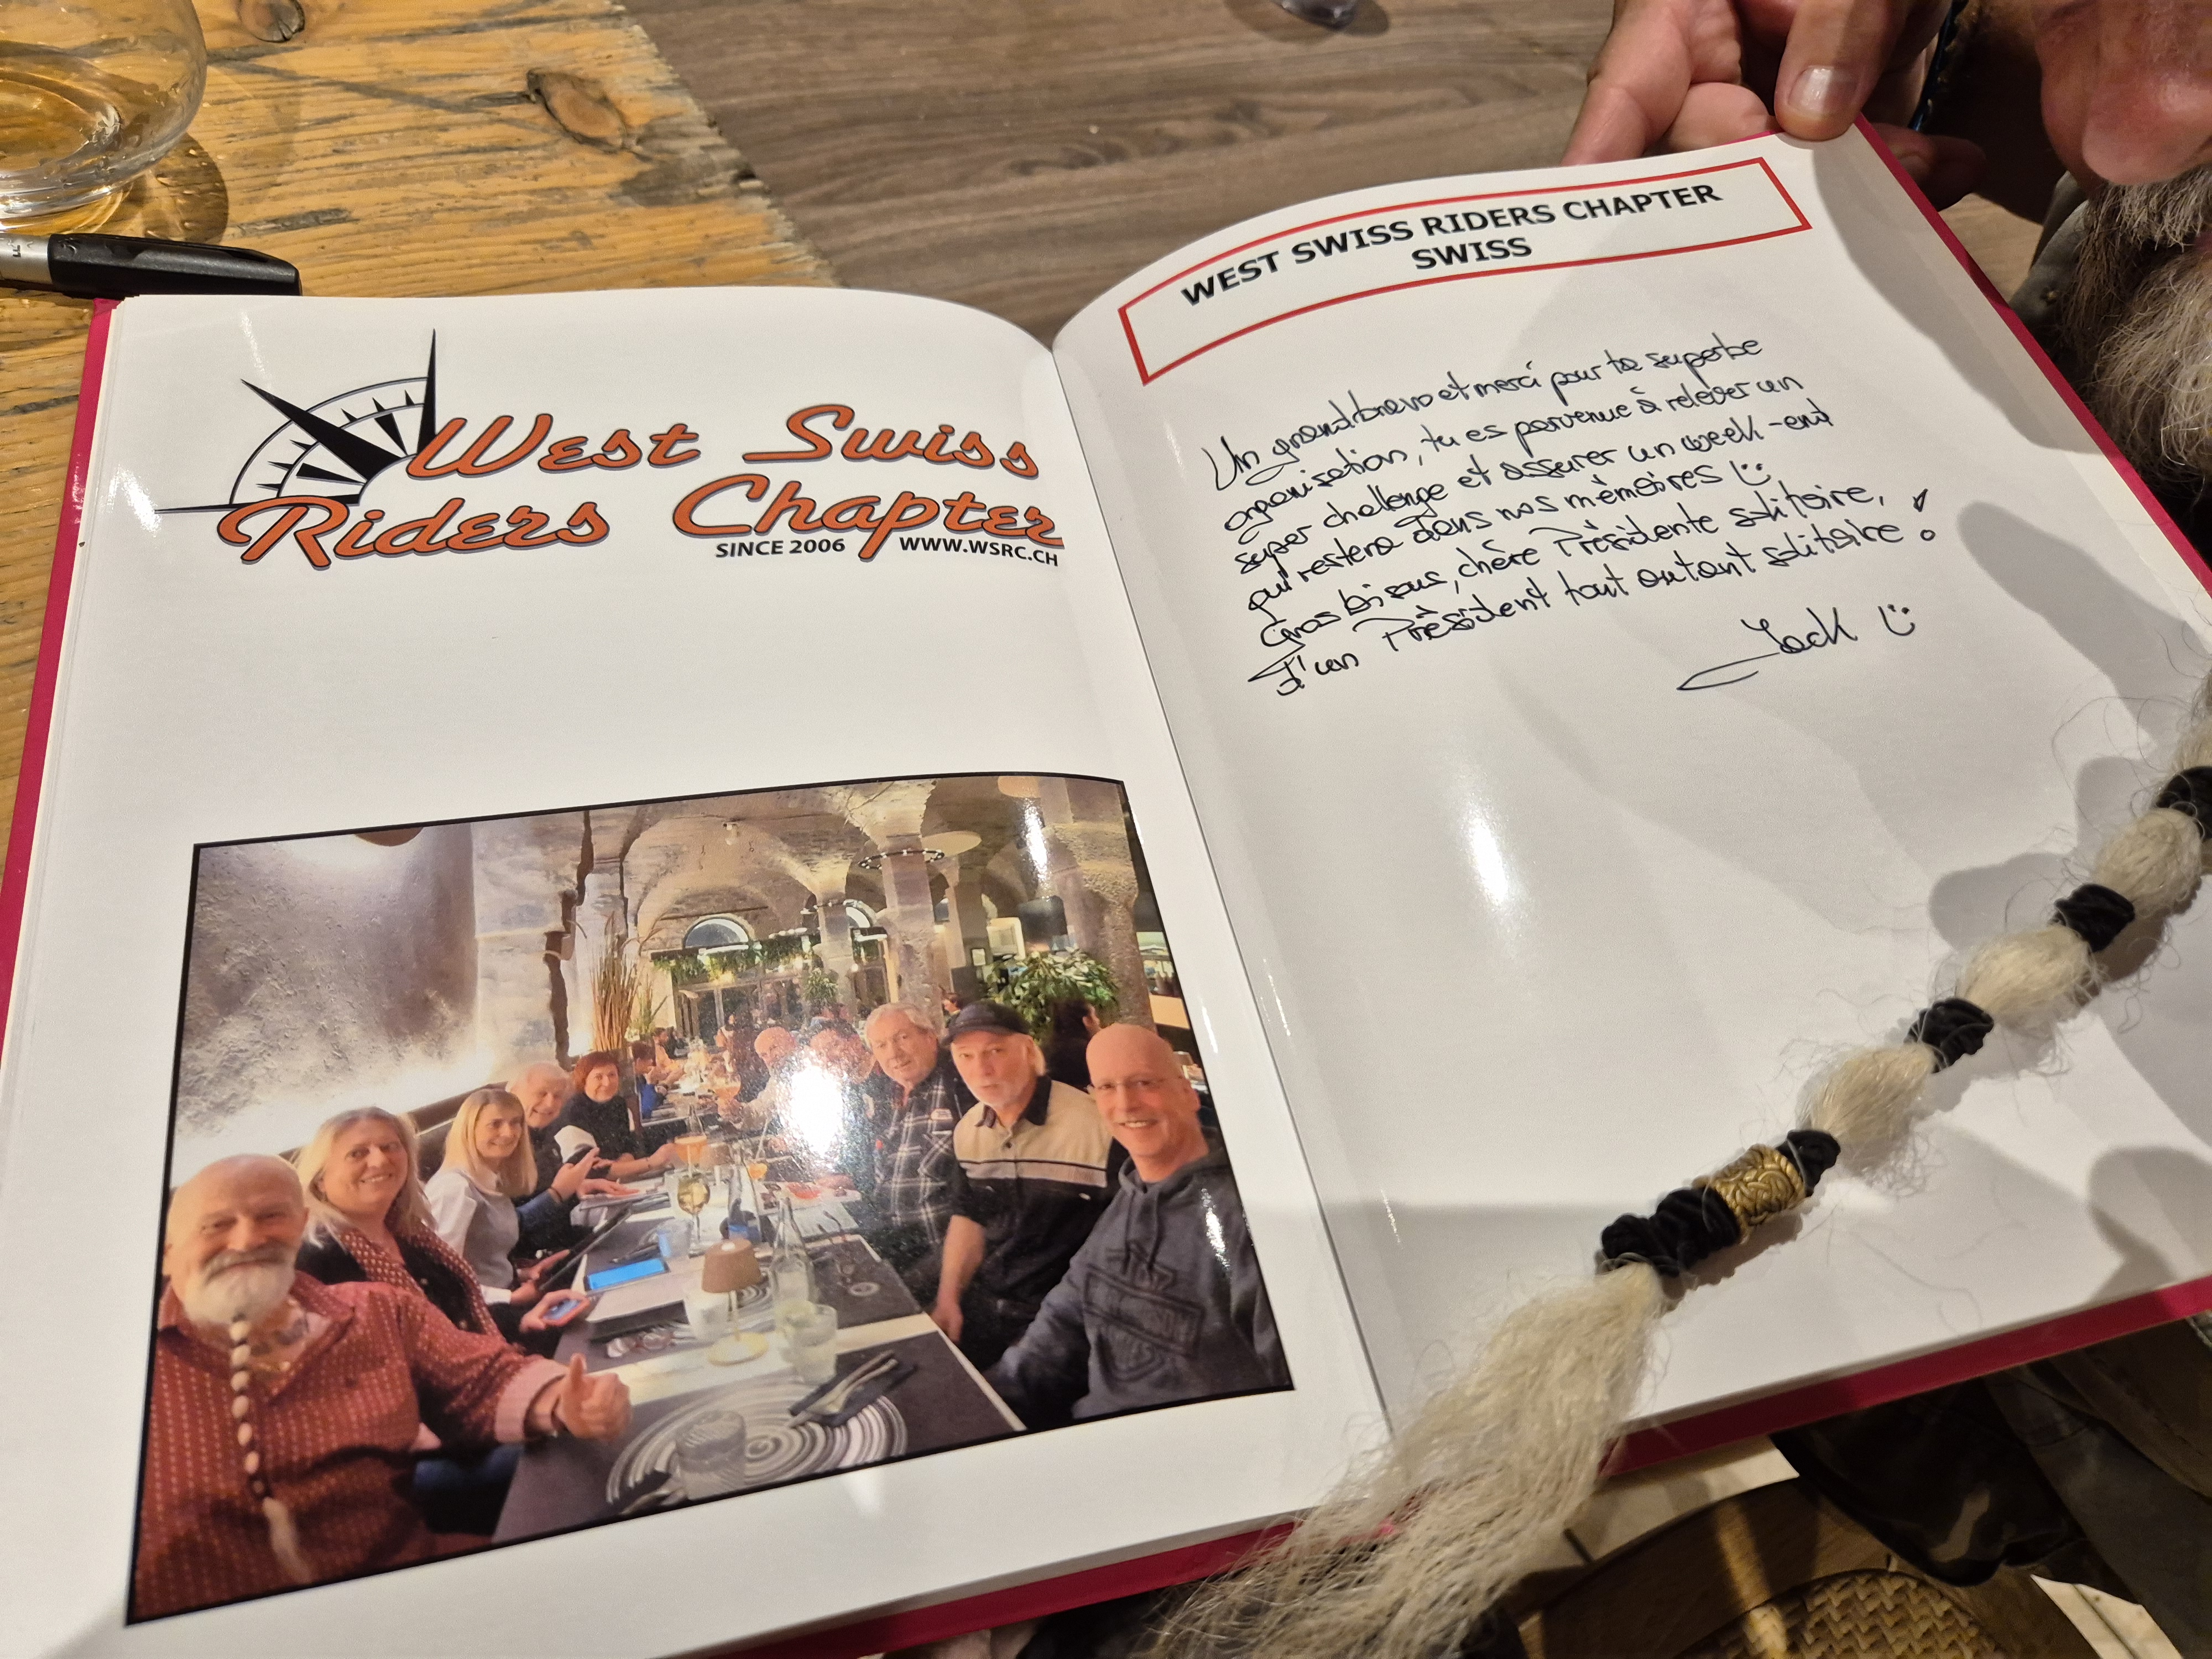 West Swiss
Riders Chapter
SINCE 2006 WWW.WSRC.CH
WEST SWISS RIDERS CHAPTER
SWISS
Un grand bravo et merci pour ta superbe
organisation, tu es parvenue à relever un
super challenge et assurer un week-end
qui restera dans nos mémoires
Gros bisous, chère Présidente solitaire,
d'un Président tout autant solitaire !
Jack